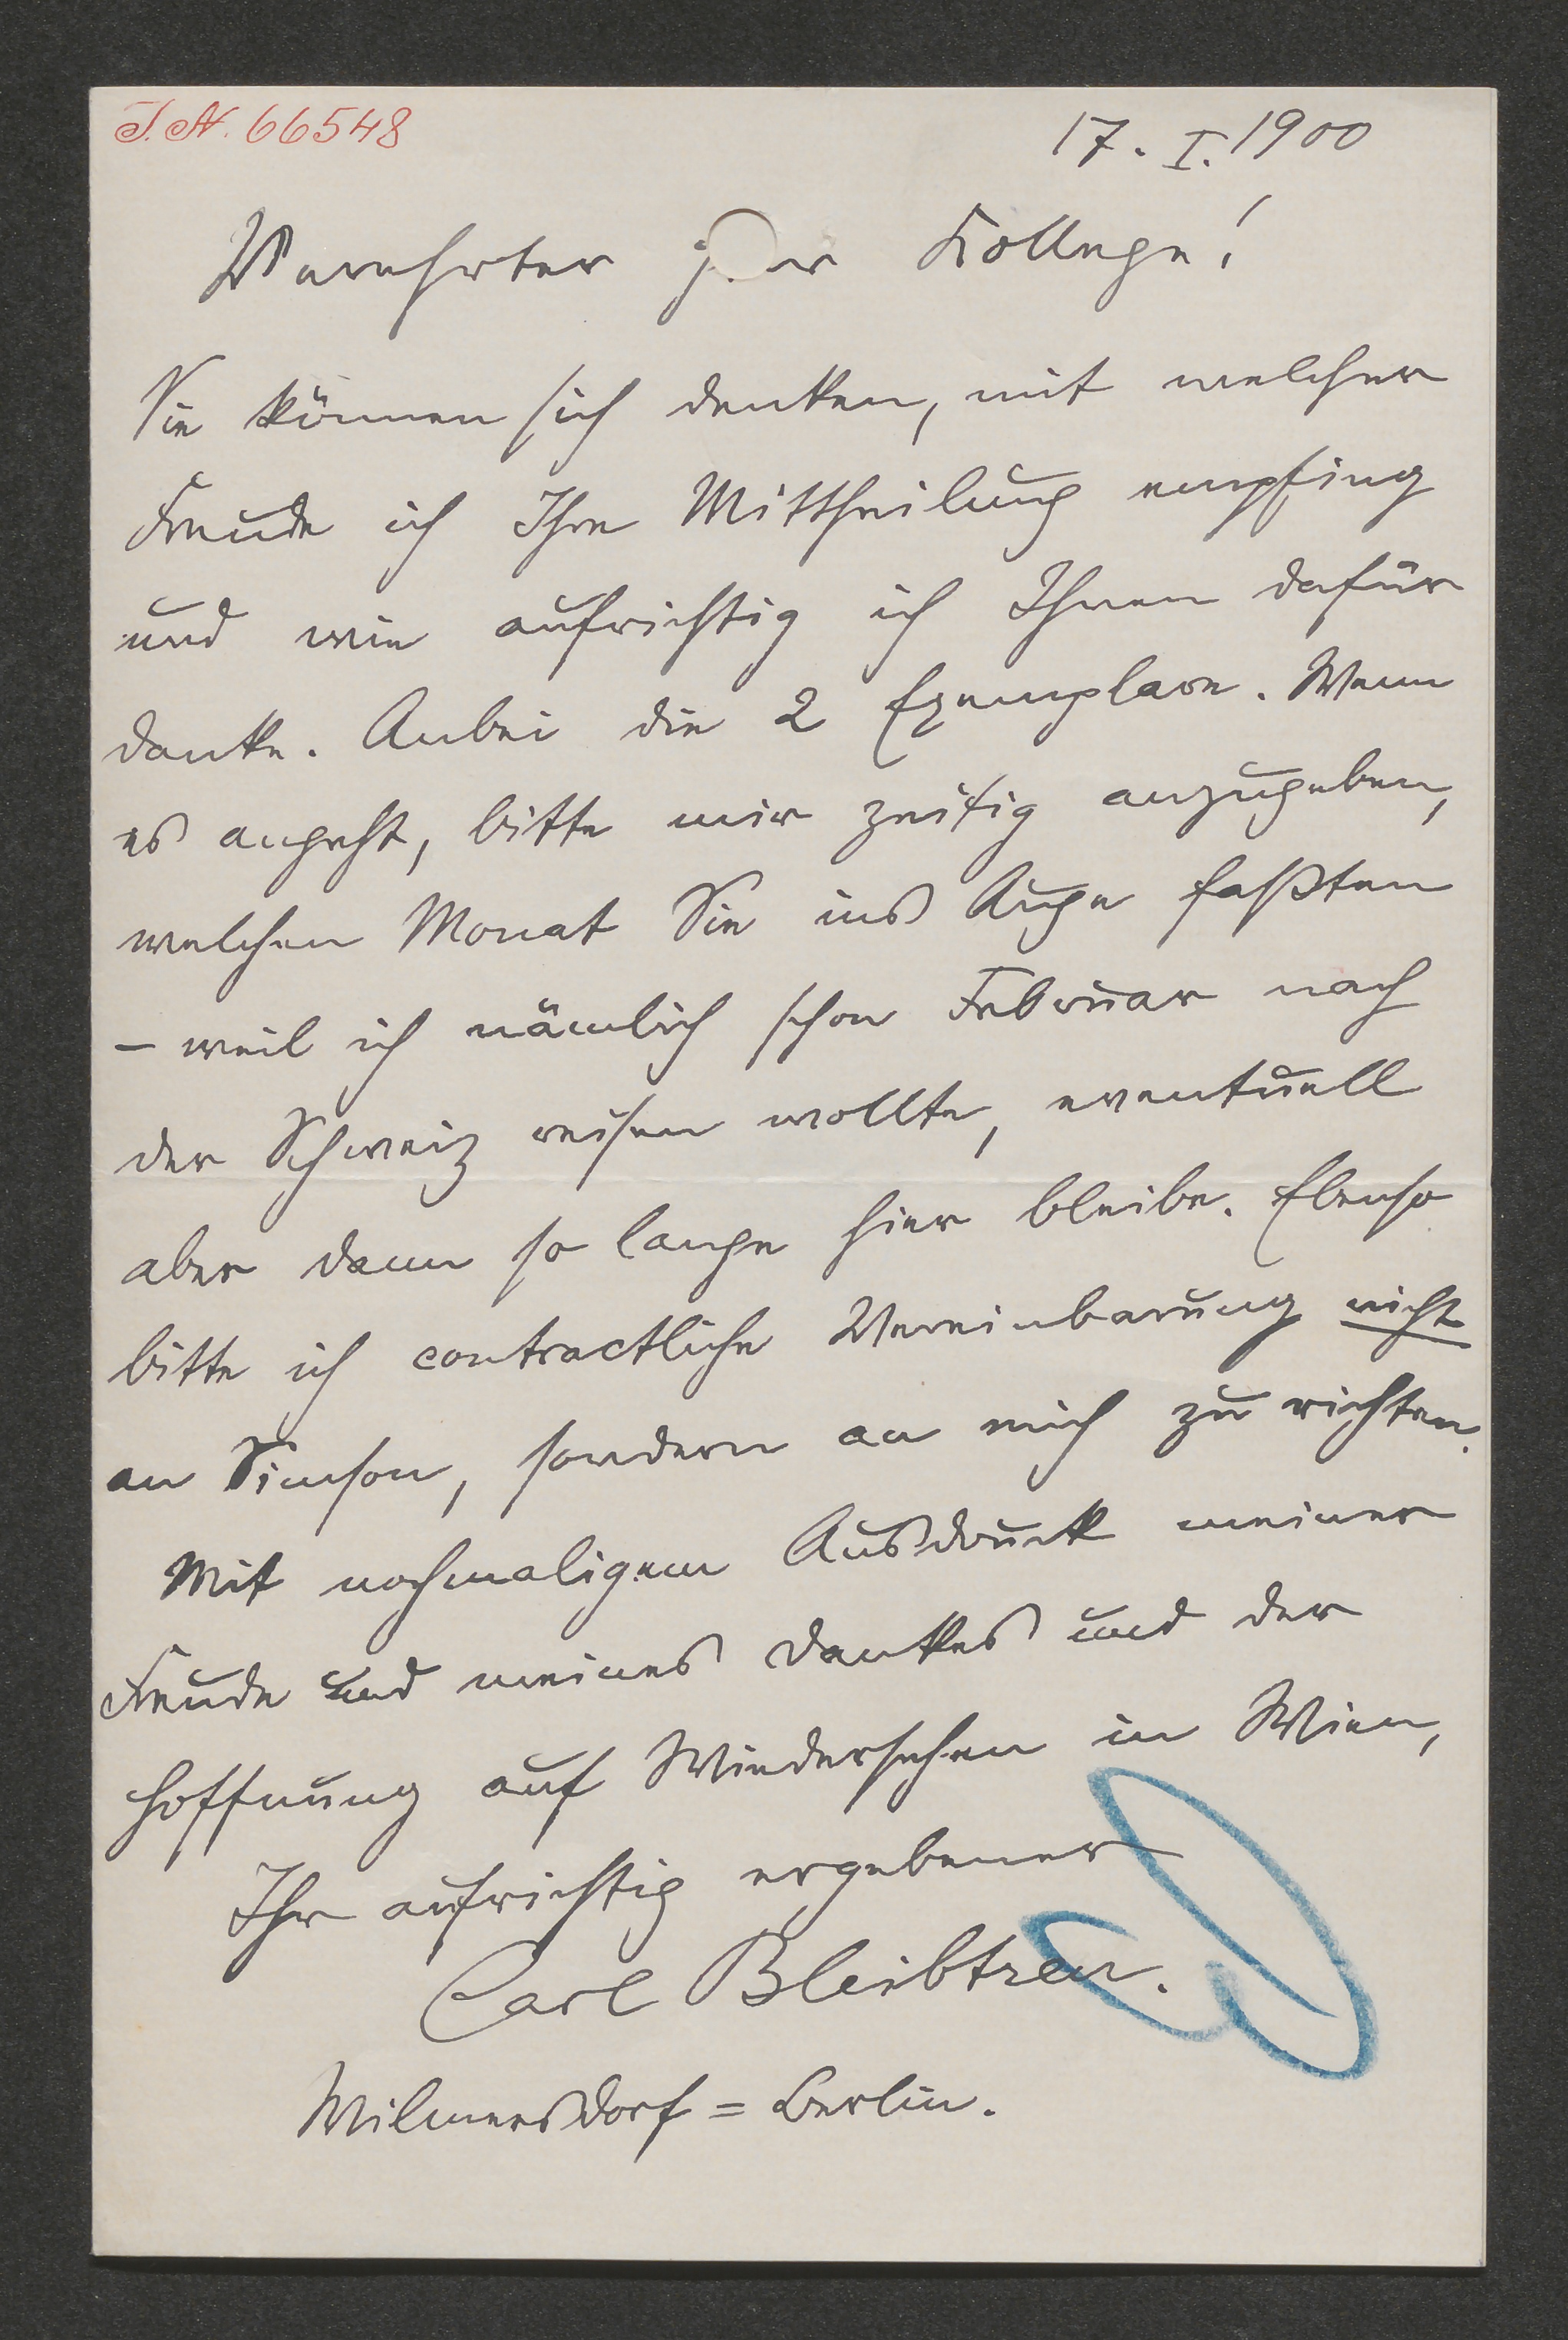 J. N. 66548
17. I. 1900
Verehrter Herr Kollege!
Sie können sich denken, mit welcher
Freude ich Ihre Mittheilung empfing
und wie aufrichtig ich Ihnen dafür
danke. Anbei die 2 Exemplare. Wenn
es angeht, bitte mir zeitig anzugeben,
welchen Monat Sie ins Auge faßten
– weil ich nämlich schon Februar nach
der Schweiz reisen wollte, eventuell
aber dann so lange hier bleibe. Ebenso
bitte ich contractliche Vereinbarung nicht
an Simson, sondern an mich zu richten.
Mit nochmaligem Ausdruck meiner
Freude und meines Dankes und der
Hoffnung auf Wiedersehen in Wien,
Ihr aufrichtig ergebener
Carl Bleibtreu.
Wilmersdorf = Berlin.